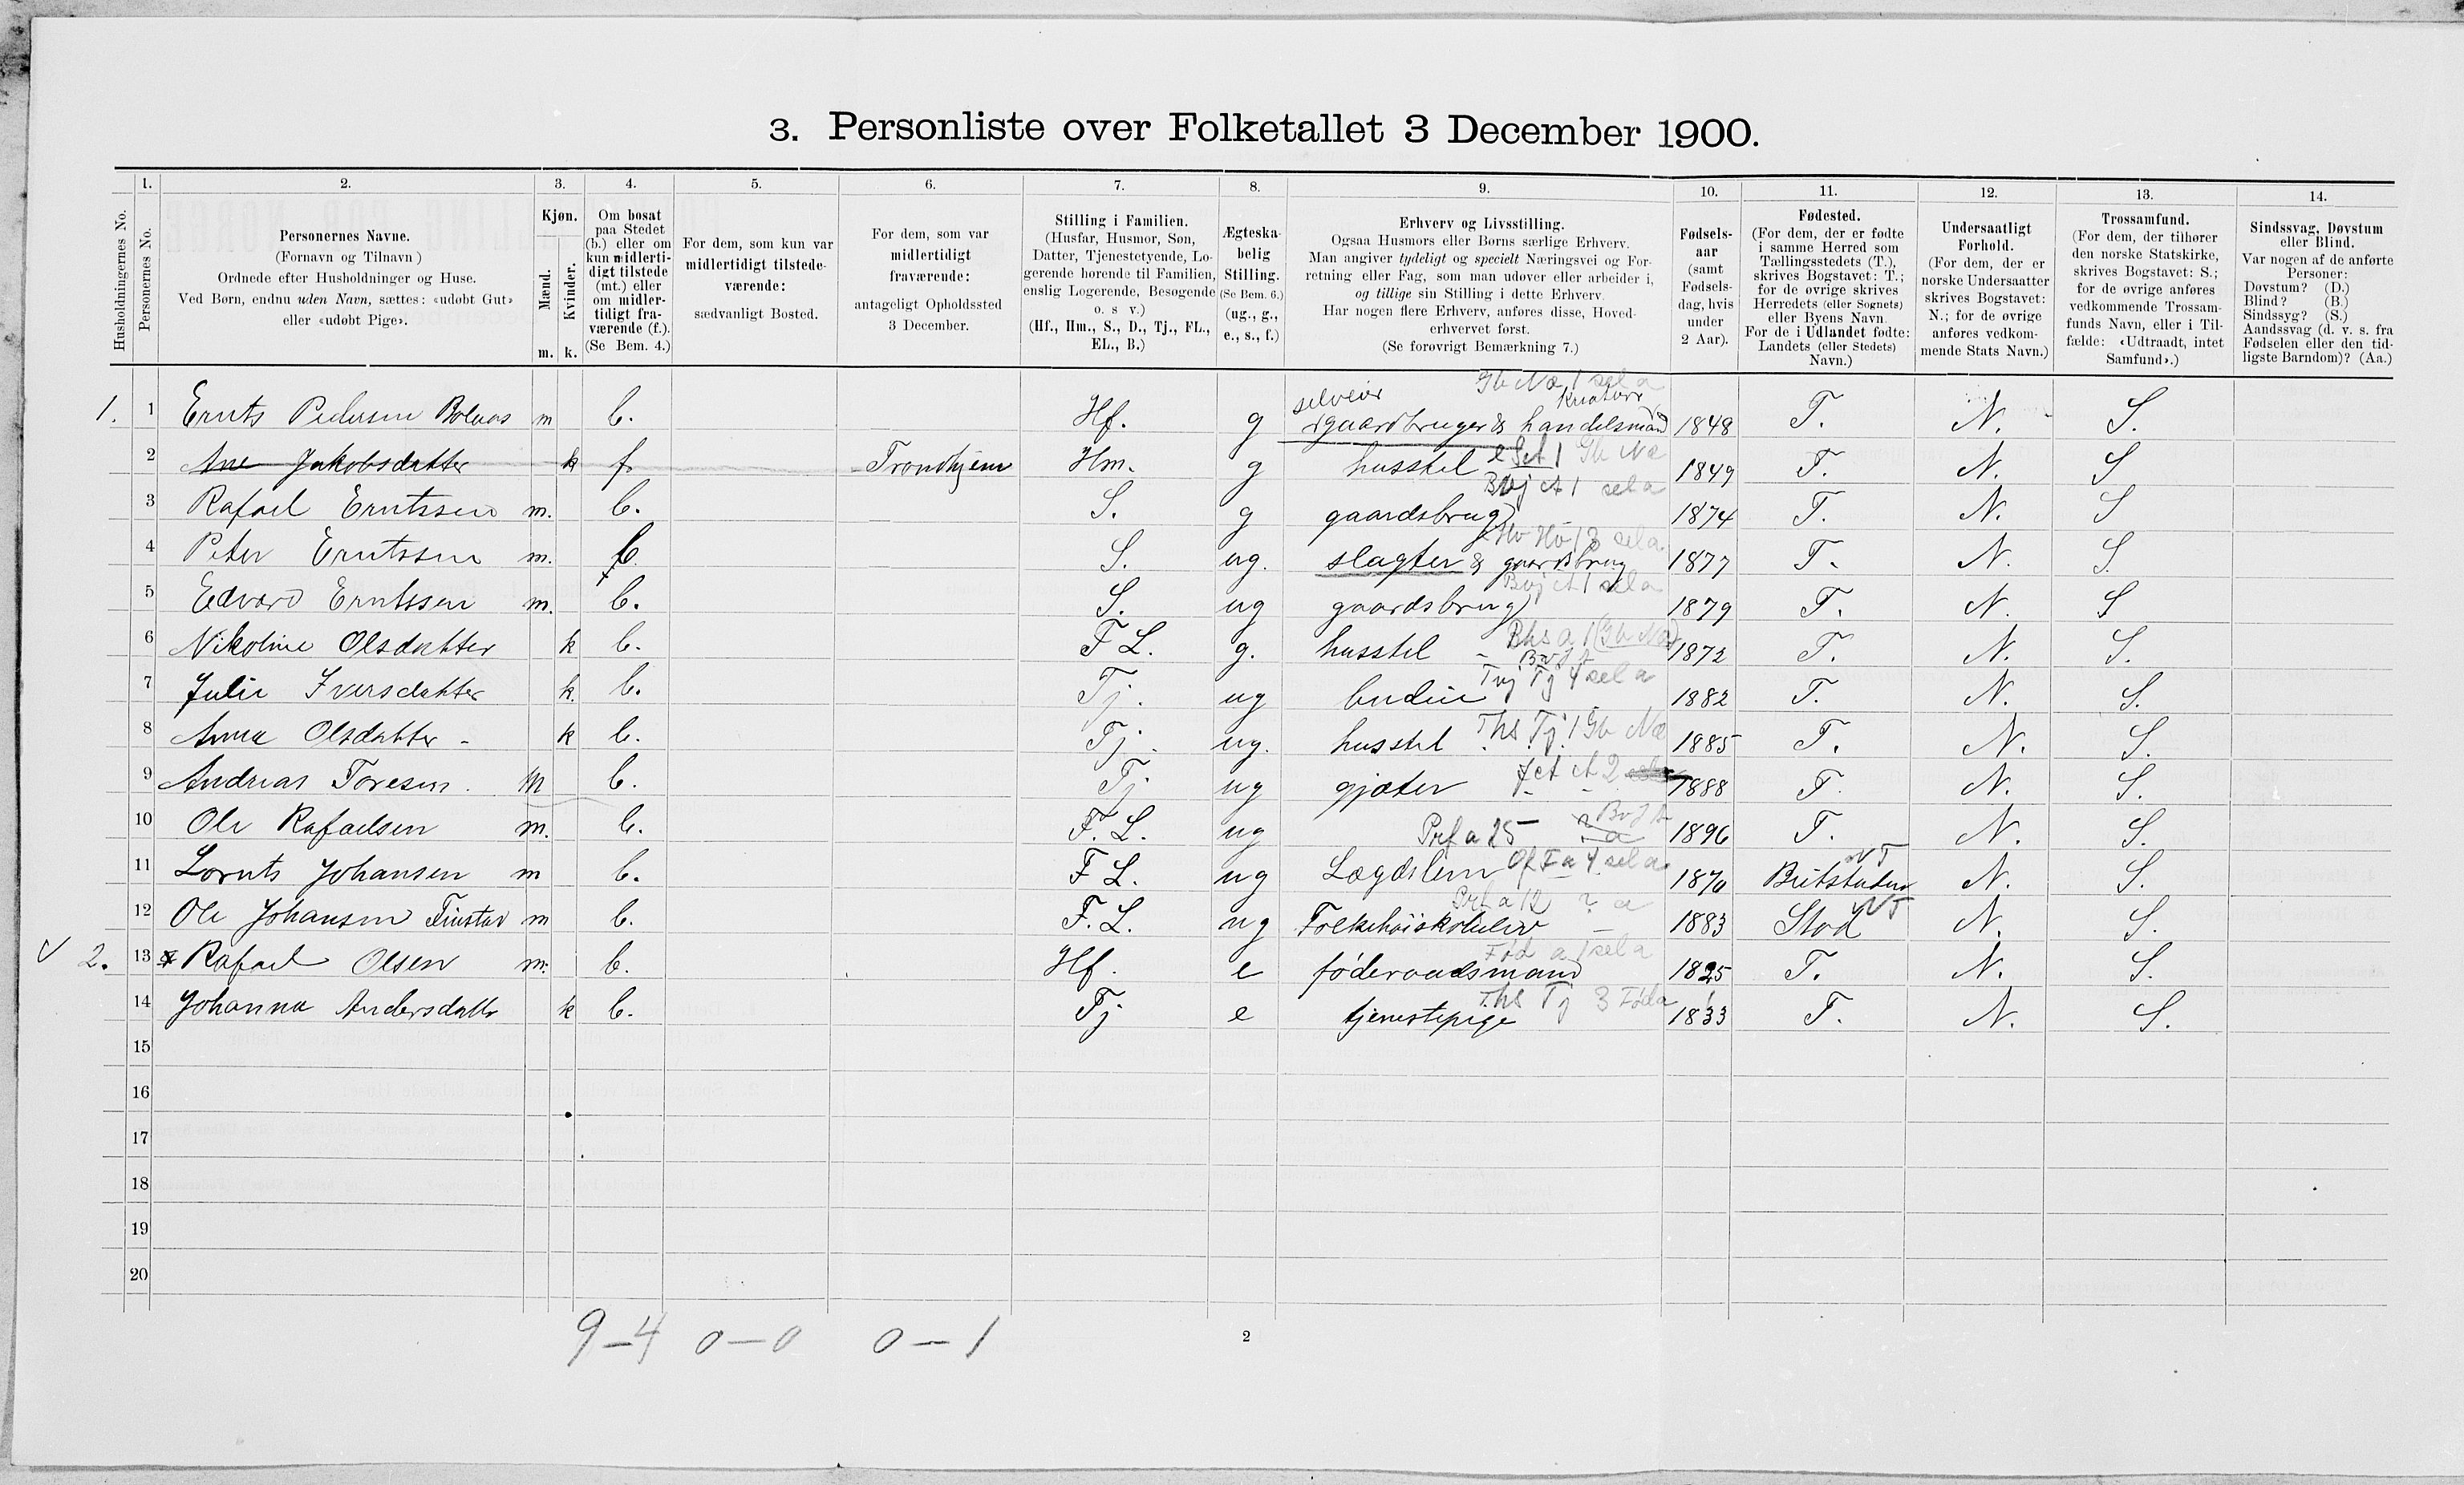 3. Personliste over Folketallet 3 December 1900.
1. 2. 3. 4. 5. 6. 7. 8. 9. 10. 11. 12. 13. 14.
Husholdningernes No.
Personernes No.
Personernes Navne.
(Fornavn og Tilnavn)
Ordnede efter Husholdninger og Huse.
Ved Børn, endnu uden Navn, sættes: «udøbt Gut»
eller «udøbt Pige».
Kjøn.
Mænd.
Kvinder.
m. k.
Om bosat
paa Stedet
(b.) eller om
kun midlerti-
digt tilstede
(mt.) eller
om midler-
tidigt fra-
værende (f.).
(Se Bem. 4.)
For dem, som kun var
midlertidigt tilstede-
værende:
sædvanligt Bosted.
For dem, som var
midlertidigt
fraværende:
antageligt Opholdssted
3 December.
Stilling i Familien.
(Husfar, Husmor, Søn,
Datter, Tjenestetyende, Lo-
gerende hørende til Familien,
enslig Logerende, Besøgende
o. s v.)
(Hf., Hm., S., D., Tj., FL.,
EL., B.)
Ægteska-
belig
Stilling.
(Se Bem. 6.)
(ug., g.,
e., s., f.)
Erhverv og Livsstilling.
Ogsaa Husmors eller Børns særlige Erhverv.
Man angiver tydeligt og specielt Næringsvei og For-
retning eller Fag, som man udøver eller arbeider i,
og tillige sin Stilling i dette Erhverv.
Har nogen flere Erhverv, anføres disse, Hoved-
erhvervet først.
(Se forøvrigt Bemærkning 7.)
Fødsels-
aar
(samt
Fødsels-
dag, hvis
under
2 Aar).
Fødested.
(For dem, der er fødte
i samme Herred som
Tællingsstedets (T.),
skrives Bogstavet: T.;
for de øvrige skrives
Herredets (eller Sognets)
eller Byens Navn.
For de i Udlandet fødte:
Landets (eller Stedets)
Navn.)
Undersaatligt
Forhold.
(For dem, der er
norske Undersaatter
skrives Bogstavet:
N.; for de øvrige
anføres vedkom-
mende Stats Navn.)
Trossamfund.
(For dem, der tilhører
den norske Statskirke,
skrives Bogstavet: S.;
for de øvrige anføres
vedkommende Trossam-
funds Navn, eller i Til-
fælde: «Udtraadt, intet
Samfund».)
Sindssvag, Døvstum
eller Blind.
Var nogen af de anførte
Personer:
Døvstum? (D.)
Blind? (B.)
Sindssyg? (S.)
Aandssvag (d. v. s. fra
Fødselen eller den tid-
ligste Barndom)? (Aa.)
Gb Næ 1 sel a
selveier Kreatur
1. 1 Ernts Pedersen m b. Hf. g gaardbruger & handelsmand 1848 T. N. S.
2 Ane Jakobsdatter k f. Trondhjem Hm. g husstel 1849 T. N. S
3 Rafael Erntssen m. b. S. g gaardsbrug 1874 T. N. S
4 Peter Erntssen m. b S. ug. slagter & gaardsbrug 1877 T. N. S.
5 Edvard Erntssen m. b. S. ug gaardsbrug 1879 T. N. S
6 Nikoline Olsdatter k b. F L. g. husstel 1872 T. N. S.
7 Julie Iversdatter k. b. Tj. ug budeie 1882 T. N. S.
8 Anna Olsdatter k b. Tj. ug. husstel Ths. Tj. 1 Gb Næ 1885 T. N. S.
9 Andreas Toresen. m b. Tj ug gjæter 1888 T. N. S.
10 Ole Rafaelsen m. b. F. L. ug Prf a 25 1896 T. N. S.
11 Lornts Johansen m b. F L. ug Lægdslem 1870 Beitstaden NT N. S.
12 Ole Johansen Finstad m b. F. L. ug Folkehøiskoleelev 1883 Stod NT N. S.
2. 13 Rafael Olsen m. b. Hf. e føderaadsmand Fød a 1 sel a 1825 T. N. S.
14 Johanna Andersdatter k b. Tj e tjenestepige Ths Tj 3 Føda 1833 T. N. S.
15
16
17
18
19
20
9-4 0-0 0-1
2